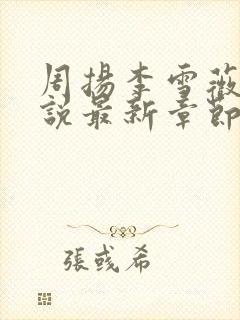 周揚李雪薇
說最新章節
張彧希